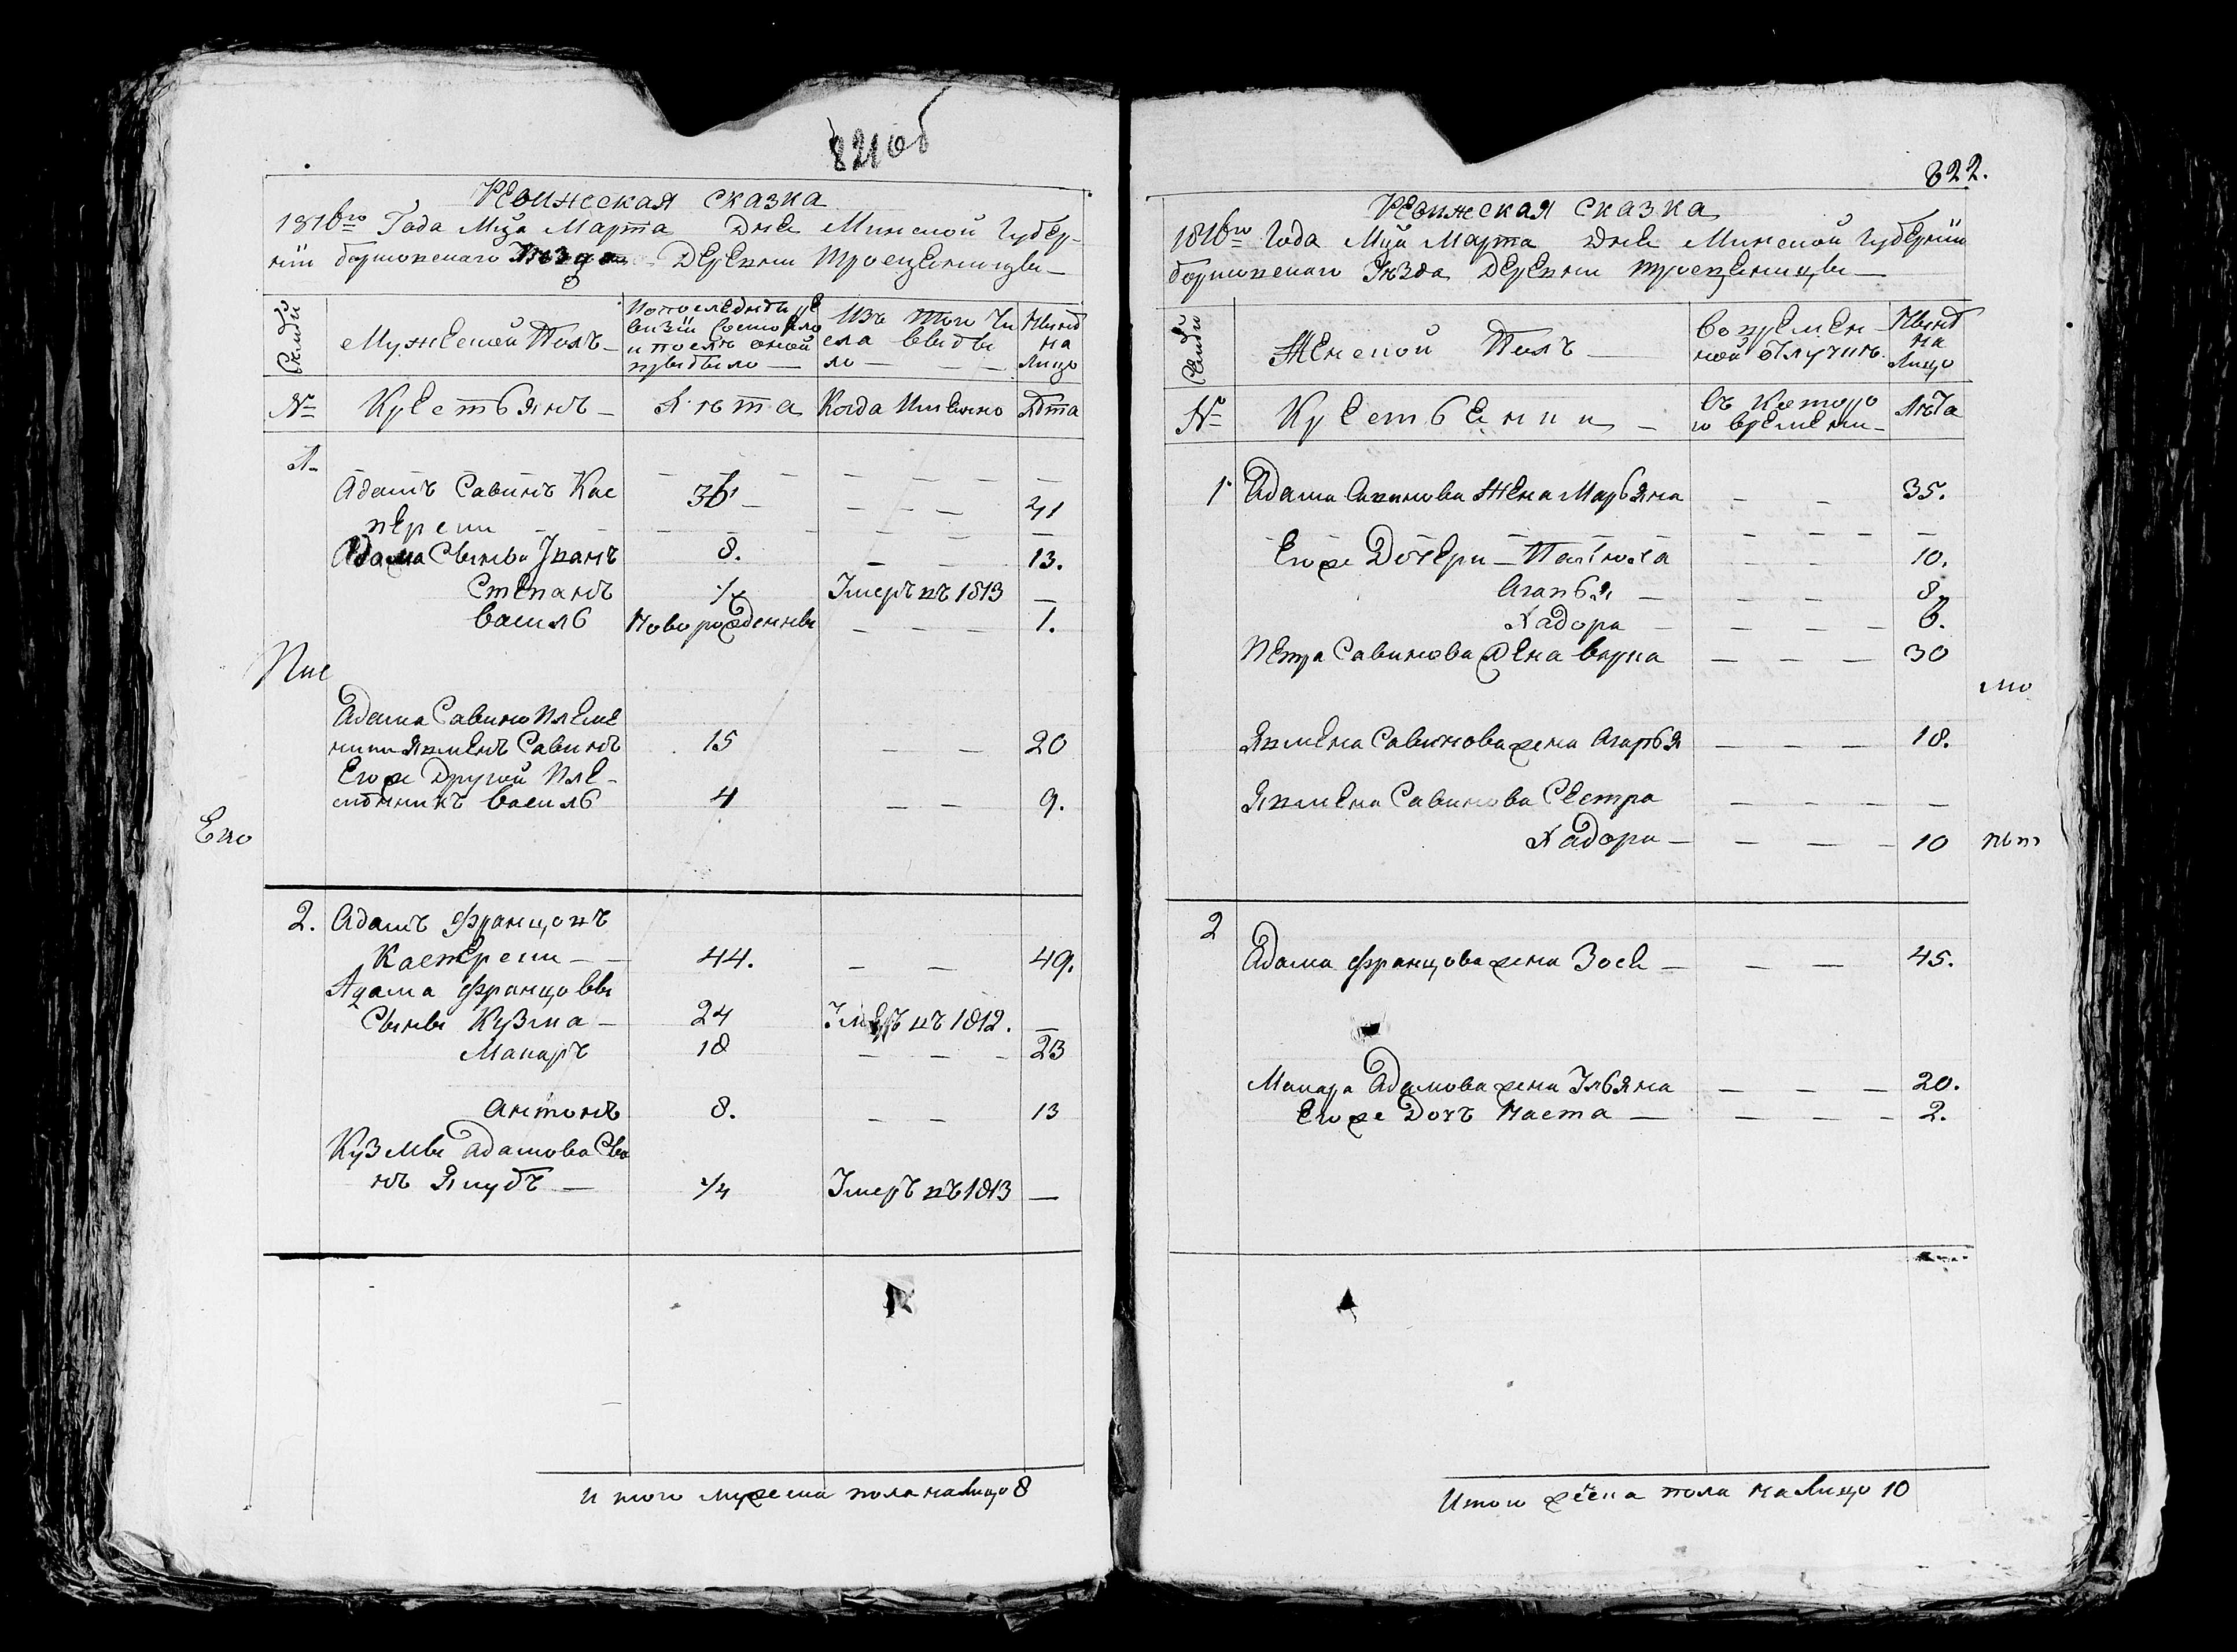 821об
Ревижская сказка
1816го Года Мца Марта Дня Минской Губер-
нии борисовскаго Уезда Деревни Троецениецы
Семьи
Мужеской Полъ
По последней ре
визiи состояло
и после оной
прибыло
Изъ того Чи
сла выбы
ло
Ныне
на
Лицо
№ Крестьянъ Лета Когда Именно Лета
1.
Адамъ Савинъ Кас 36 41
перски
Адама Сынъ Иванъ 8. 13.
Степанъ Умеръ въ 1813
Василь Новорожденны 1.
Адама Савино племе
никъ Якменъ Савинъ 15 20
Егоже Другой Пле-
менникъ Василь 4 9.
2. Адамъ Францовъ
Касперски 44. 49.
Адама Францовы
Сыны Кузма 24 Умеръ въ 1812.
Макаръ 18 23
Антонъ 8. 13
Кузмы Адамова Сы
нъ Якубъ 1/4 Умеръ въ 1813
Итого мужеска пола на лицо 8
822.
Ревижская сказка
1816го Года Мца Марта Дня Минской Губернiи
борисовскаго Уезда Деревни Троецениецы
Семьи
Женской Полъ
Во времен
ной отлучке
Ныне
на
Лицо
№ Крестьянки Съ которо
го времени Лета
1 Адама Савинова Жена Марьяна 35.
Егоже Дочери 10.
Агапья 8.
Хадора 6.
Петра Савинова жена Варка 30
Якмена Савинова жена Агапья 18.
Якмена Савинова Сестра
Хадора 10
2 Адама Францова жена Зося 45.
Макара Адамова жена Ульяна 20.
Егоже Дочъ Наста 2.
Итого женска пола на Лицо 10